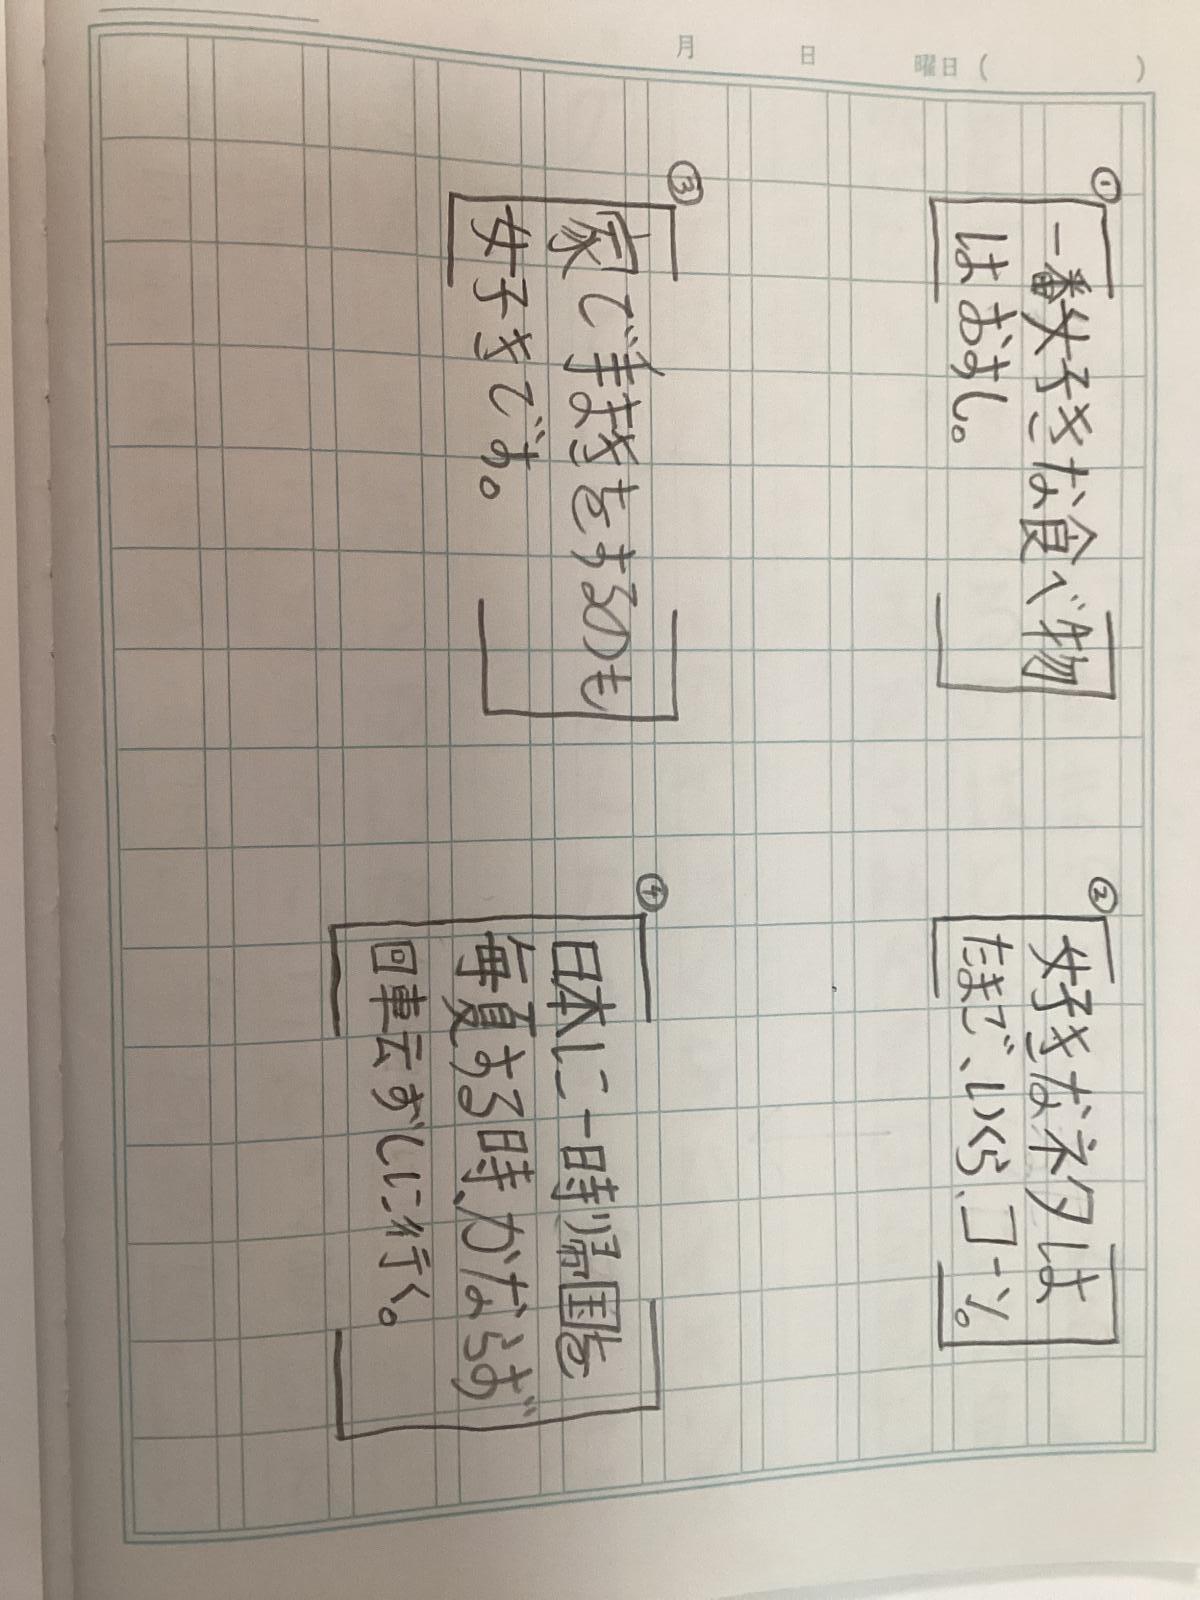 月 日 曜日( )
①
一番好きな食べ物
はおすし。
②
好きなネタは
たまご、いくら、コーン。
③
家で手まきをするのも
好きです。
④
日本に一時帰国を
毎夏する時、かならず
回車云ずしに行く。